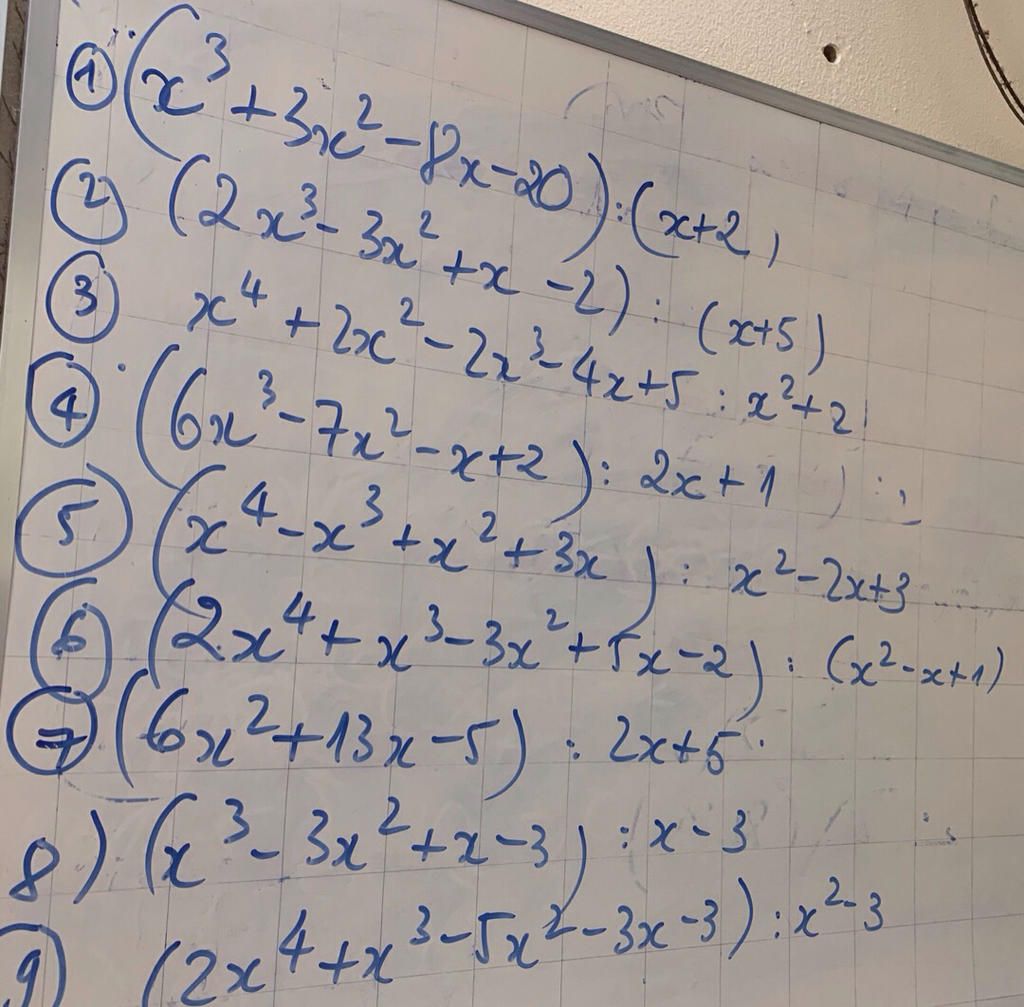 ① (x³ + 3x² - 8x - 20) : (x+2)
② (2x³ - 3x² + x - 2) : (x+5)
③ x⁴ + 2x² - 2x³ - 4x + 5 : x² + 2
④ (6x³ - 7x² - x + 2) : 2x + 1
⑤ (x⁴ - x³ + x² + 3x) : x² - 2x + 3
⑥ (2x⁴ + x³ - 3x² + 5x - 2) : (x² - x + 1)
⑦ (6x² + 13x - 5) : 2x + 5
8) (x³ - 3x² + x - 3) : x - 3
⑨ (2x⁴ + x³ - 5x² - 3x - 3) : x² - 3